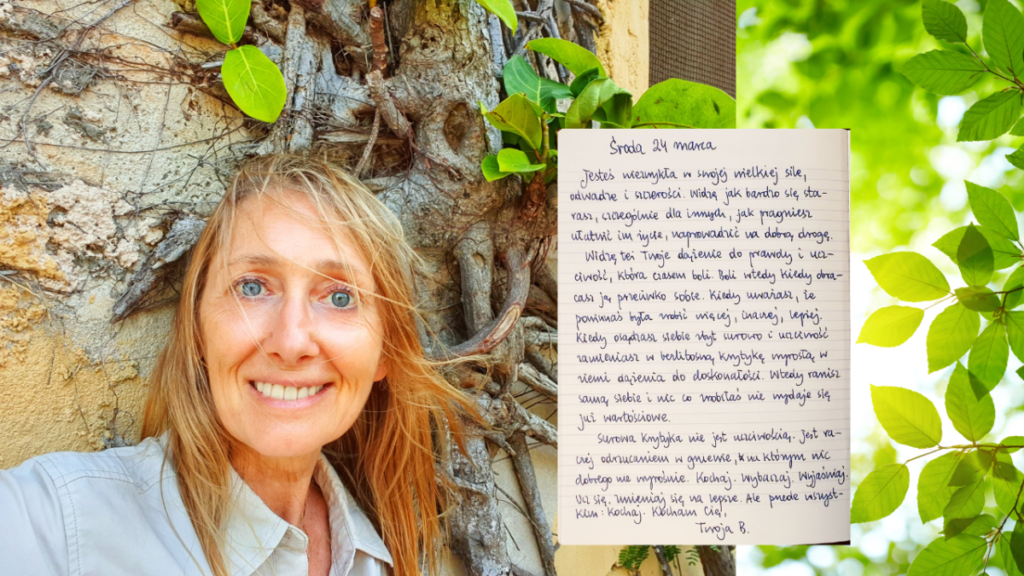 Środa 24 marca
Jesteś niezwykła w swojej wielkiej sile,
odwadze i szczerości. Widzę jak bardzo się sta-
rasz, szczególnie dla innych, jak pragniesz
ułatwić im życie, naprowadzić na dobrą drogę.
Widzę też Twoje dążenie do prawdy i ucz-
ciwość, która czasem boli. Boli wtedy kiedy obra-
casz ją przeciwko sobie. Kiedy uważasz, że
powinnaś była zrobić więcej, inaczej, lepiej.
Kiedy osądzasz siebie zbyt surowo i uczciwość
zamieniasz w bezlitosną krytykę wyrosłą w
ziemi dążenia do doskonałości. Wtedy ranisz
samą siebie i nic co zrobiłaś nie wydaje się
już wartościowe.
Surowa krytyka nie jest uczciwością. Jest ra-
czej odrzucaniem w gniewie, na którym nic
dobrego nie wyrośnie. Kochaj. Wybaczaj. Wyjaśniaj.
Ucz się. Zmieniaj się na lepsze. Ale przede wszyst-
kim: Kochaj. Kocham Cię!
Twoja B.